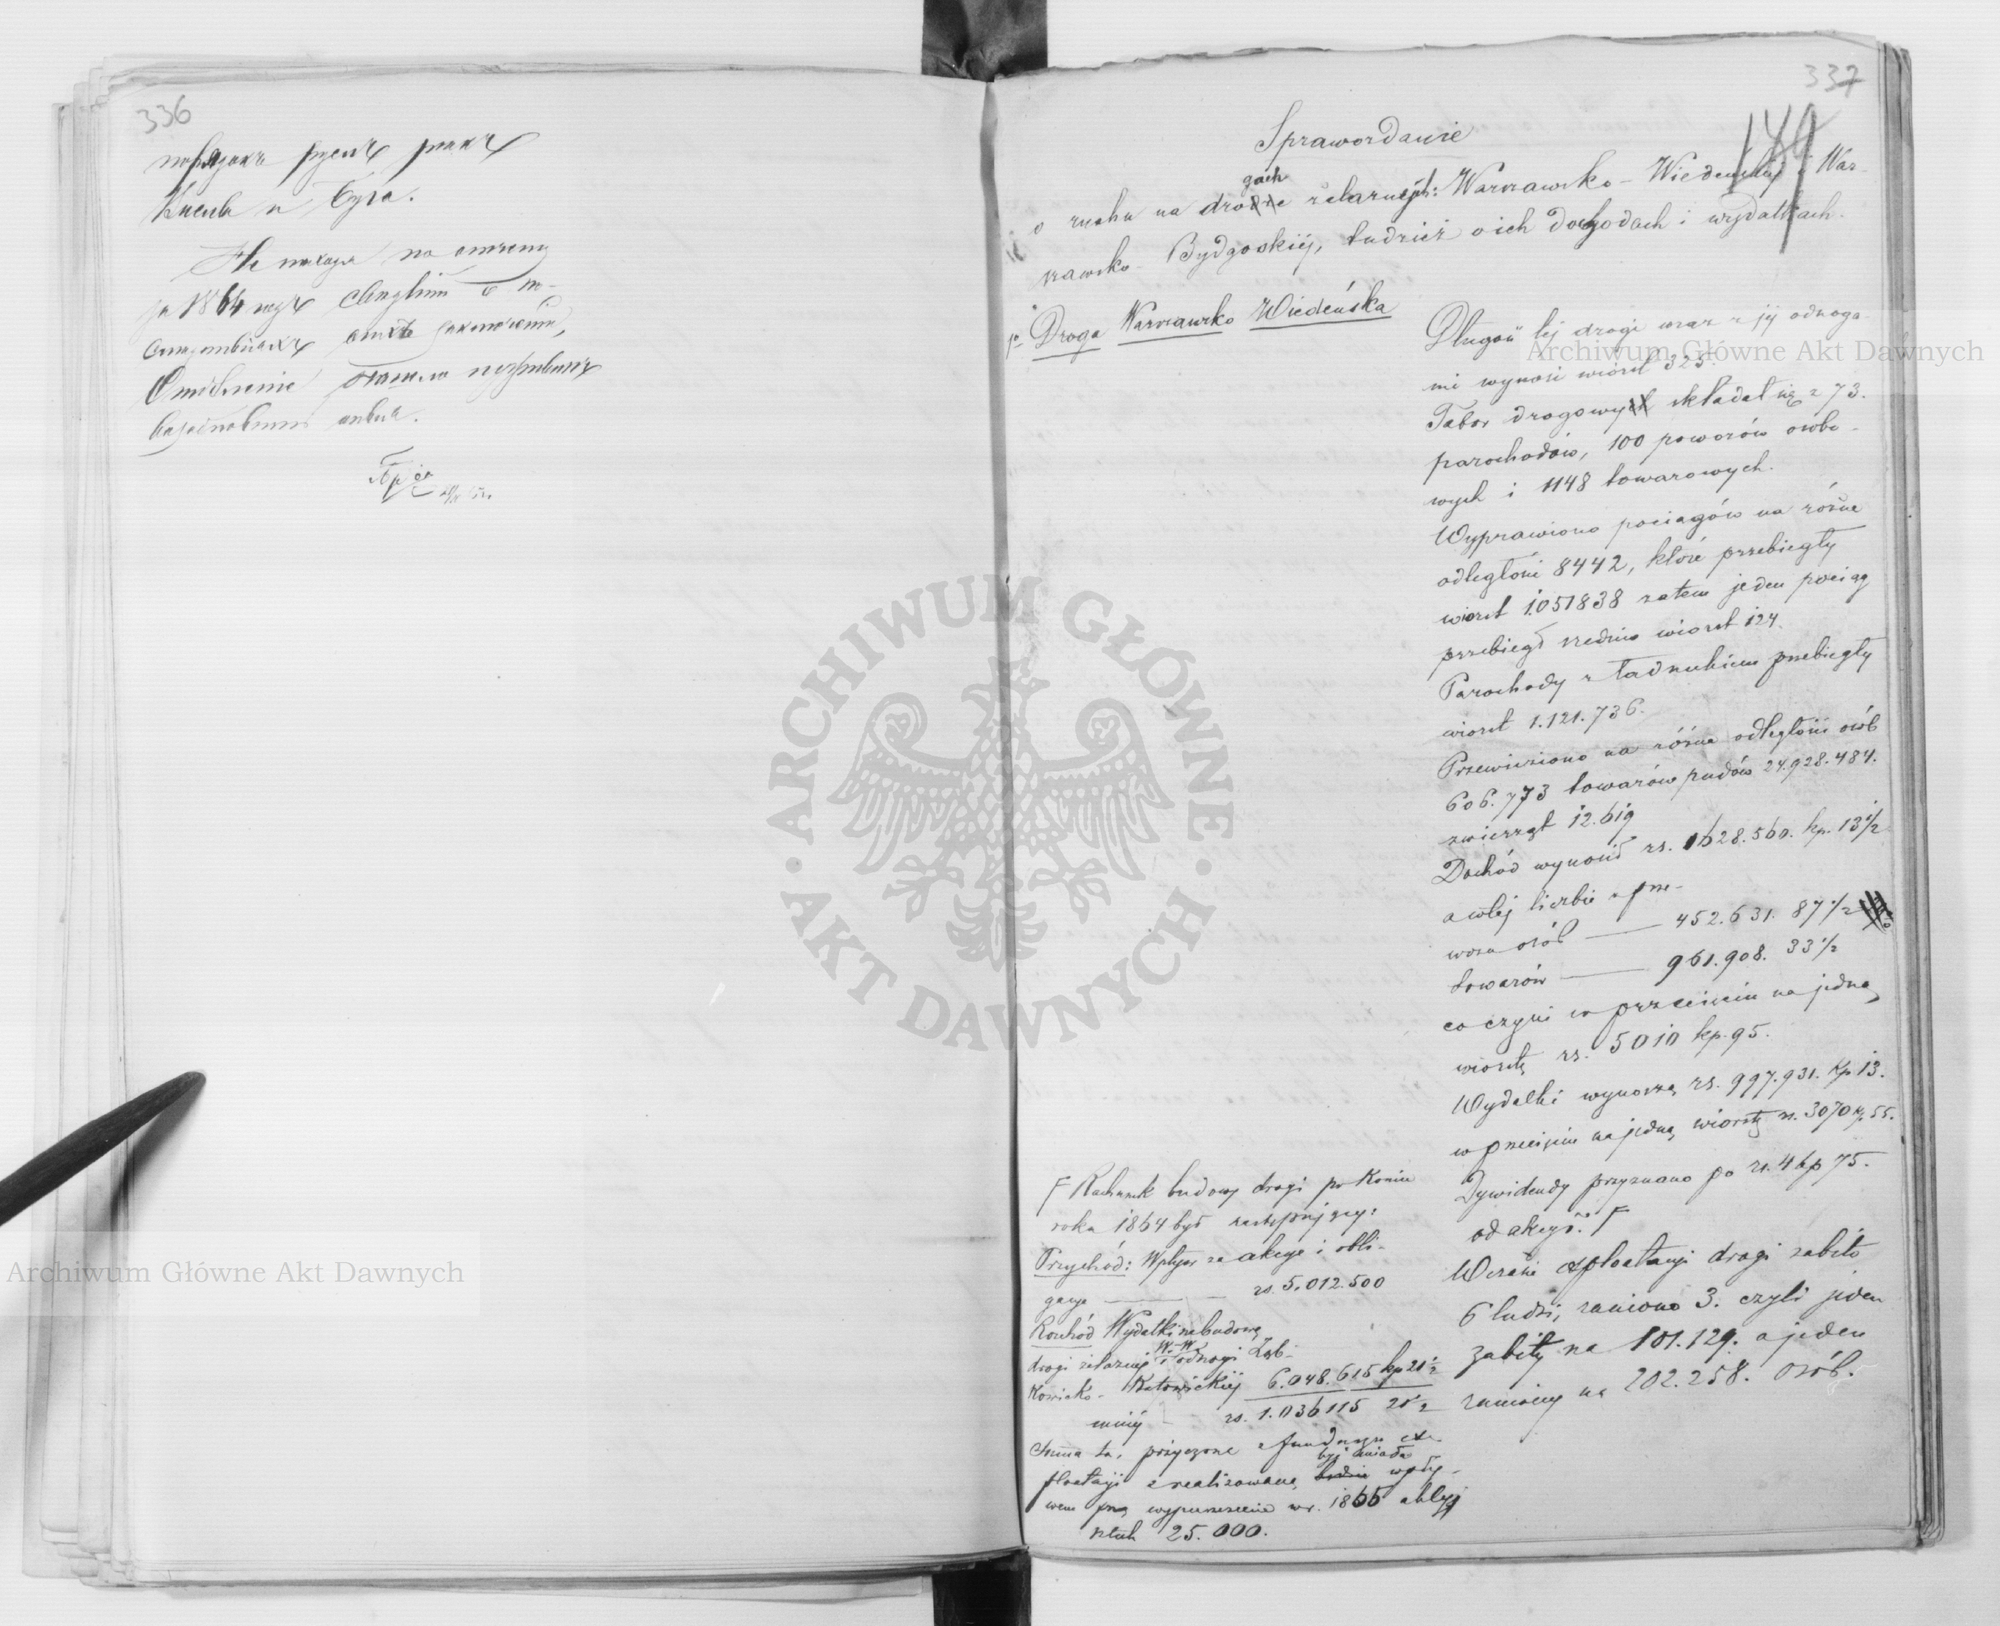 336
порядкъ русмъ рѣкъ
Вислы и Буга.
за 1864 годъ
Отдѣленіе
337
149
Sprawozdanie
o ruchu na drogach żelaznych: Warszawsko-Wiedeńskiej i War-
szawsko-Bydgoskiéj, tudzież o ich dochodach i wydatkach.
Droga Warszawsko Wiedeńska
Długość téj drogi wraz z jéj odnoga-
mi wynosi wiorst 325.
Tabor drogowy składał się z 73.
parochodów, 100 powozów osobo-
wych i 1148 towarowych.
Wyprawiono pociągów na różne
odległości 8442, które przebiegły
wiorst 1.051838 zatem jeden pociąg
przebiegł średnio wiorst 124.
Parochody z ładunkiem przebiegły
wiorst 1.121.736.
Przewieziono na różne odległości osób
606.773 towarów pudów 24.928.484.
zwierząt 12.619
Dochód wynosił rs. 1628.560. kp. 13 1/2
a w téj liczbie z prze-
wozu osób — 452.631. 87 1/2
towarów — 961.908. 33 1/2
co czyni w przecięciu na jedną
wiorstę rs. 5010 kp. 95.
Wydatki wynoszą rs. 997.931. kp 13.
w przecięciu na jedną wiorstę rs. 3070 kp. 55.
Dywidendy przyznano po rs. 4 kp 75.
od akcyi. F
W czasie exploatacyi drogi zabito
6 ludzi, raniono 3. czyli jeden
zabity na 101.129. a jeden
raniony na 202.258. osób.
F Rachunek budowy drogi po koniec
roku 1864 był następujący:
Przychód: Wpływ za akcye i obli-
gacye — rs. 5.012.500
Rozchód Wydatki na budowę
drogi żelaznéj W. W. i odnogi Ząb-
kowicko-Katowickiéj 6.048.615 kp 21 1/2
mniéj — rs. 1.036115 21 1/2
Summa ta, pożyczona z funduszu ex-
ploatacyi zrealizowaną być miała wpły-
wem przez wypuszczenie w r. 1865 akcyj
sztuk 25.000.
Archiwum Główne Akt Dawnych
ARCHIWUM GŁÓWNE AKT DAWNYCH
Archiwum Główne Akt Dawnych